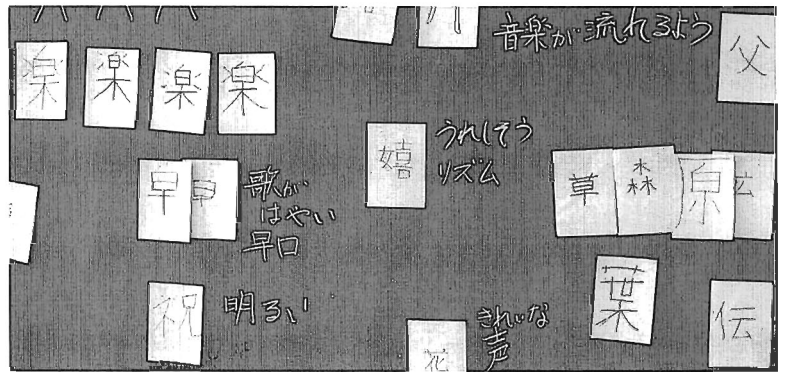 音楽が流れるよう
父
楽 楽 楽 楽
嬉
うれしそう
リズム
早 早
歌が
はやい
早口
草 森 原
葉
祝
明るい
花
きれいな
声
伝